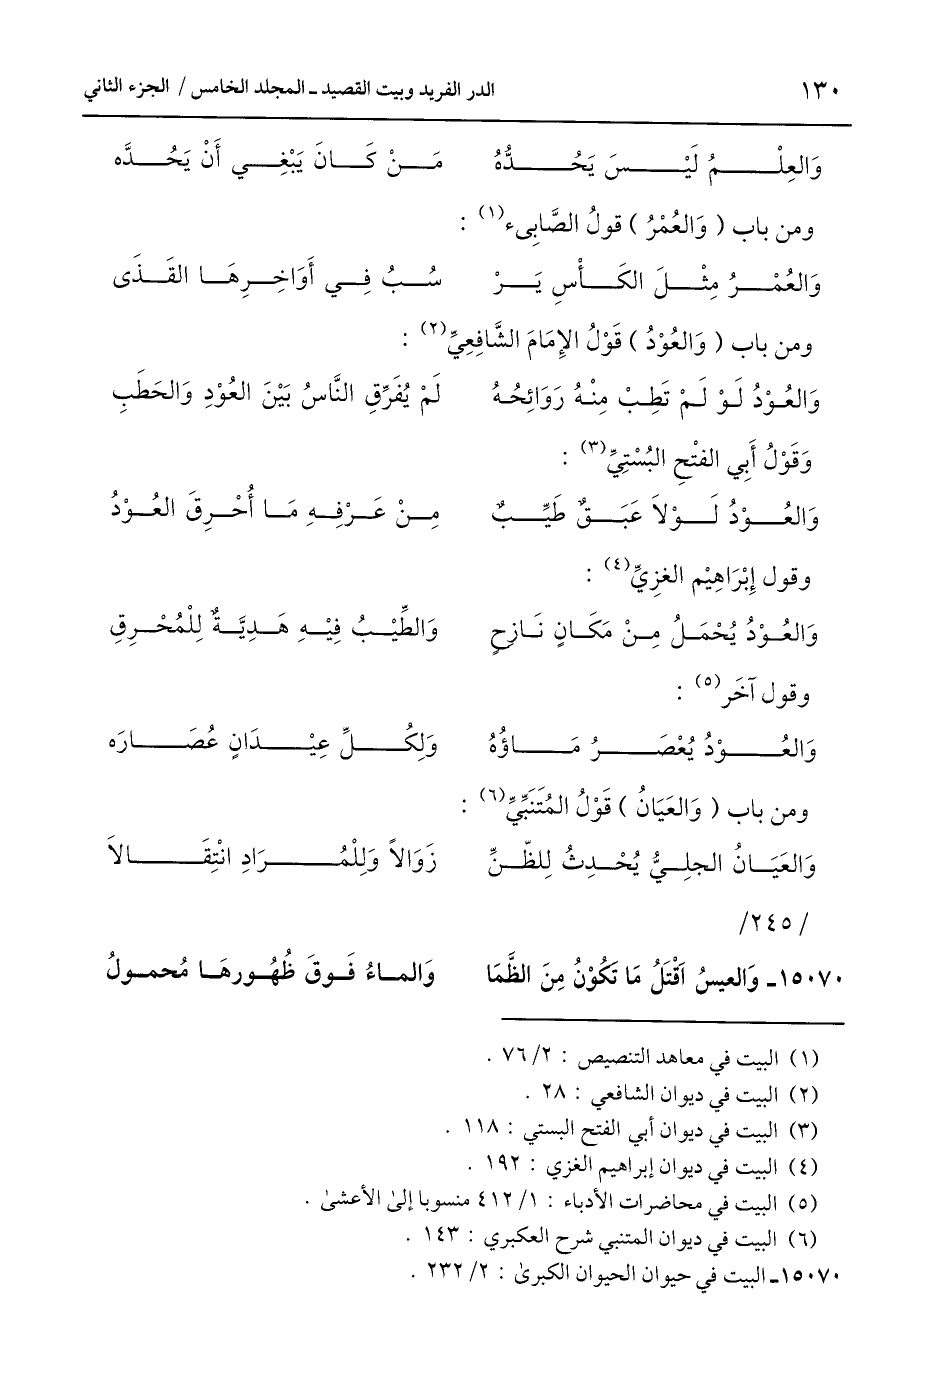 ١٣٠ الدر الفريد وبيت القصيد ـ المجلد الخامس / الجزء الثاني
وَالعِلْمُ لَيْسَ يَحُدُّهُ مَنْ كَانَ يَبْغِي أَنْ يَحُدَّه
ومن باب ( وَالعُمْرُ ) قولُ الصَّابِىء(١) :
وَالعُمْرُ مِثْلَ الكَأْسِ يَرْ سُبُ فِي أَوَاخِرِهَا القَذَى
ومن باب ( وَالعُوْدُ ) قَوْلُ الإِمَامَ الشَّافِعِيِّ(٢) :
وَالعُوْدُ لَوْ لَمْ تَطِبْ مِنْهُ رَوَائِحُهُ لَمْ يُفَرِّقِ النَّاسُ بَيْنَ العُوْدِ وَالحَطَبِ
وَقَوْلُ أَبِي الفَتْحِ البُسْتِيِّ(٣) :
وَالعُوْدُ لَوْلاَ عَبَقٌ طَيِّبٌ مِنْ عَرْفِهِ مَا أُحْرِقَ العُوْدُ
وقول إِبْرَاهِيْمِ الغزيِّ(٤) :
وَالعُوْدُ يُحْمَلُ مِنْ مَكَانٍ نَازِحٍ وَالطِّيْبُ فِيْهِ هَدِيَّةٌ لِلْمُحْرِقِ
وقول آخَر(٥) :
وَالعُوْدُ يُعْصَرُ مَاؤُهُ وَلِكُلِّ عِيْدَانٍ عُصَارَه
ومن باب ( وَالعَيَانُ ) قَوْلُ المُتَنَبِّيِّ(٦) :
وَالعَيَانُ الجلِيُّ يُحْدِثُ لِلظَّنِّ زَوَالاً وَلِلْمُرَادِ انْتِقَالاَ
/٢٤٥/
١٥٠٧٠ـ وَالعيسُ اَقْتَلُ مَا تَكُوْنُ مِنَ الظَّمَا وَالماءُ فَوقَ ظُهُورهَا مُحمولُ
(١) البيت في معاهد التنصيص : ٢/ ٧٦ .
(٢) البيت في ديوان الشافعي : ٢٨ .
(٣) البيت في ديوان أبي الفتح البستي : ١١٨ .
(٤) البيت في ديوان إبراهيم الغزي : ١٩٢ .
(٥) البيت في محاضرات الأدباء : ١/ ٤١٢ منسوبا إلىٰ الأعشىٰ .
(٦) البيت في ديوان المتنبي شرح العكبري : ١٤٣ .
١٥٠٧٠ـ البيت في حيوان الحيوان الكبرىٰ : ٢/ ٢٣٢ .